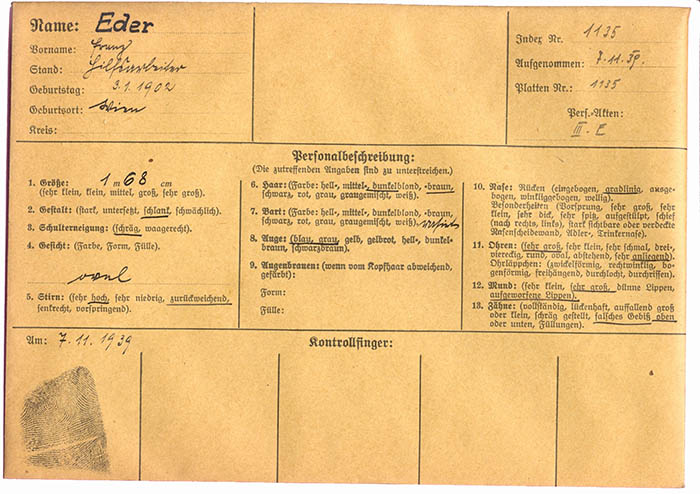 Name: Eder
Vorname: Franz
Stand: Hilfsarbeiter
Geburtstag: 3.1.1902
Geburtsort: Wien
Kreis:
Index Nr. 1135
Aufgenommen: 7.11.39.
Platten Nr.: 1135
Pers.-Akten:
III. E
Personalbeschreibung:
(Die zutreffenden Angaben sind zu unterstreichen.)
1. Größe: 1 m 68 cm
(sehr klein, klein, mittel, groß, sehr groß).
2. Gestalt: (stark, untersetzt, schlank, schwächlich).
3. Schulterneigung: (schräg, waagerecht).
4. Gesicht: (Farbe, Form, Fülle).
oval
5. Stirn: (sehr hoch, sehr niedrig, zurückweichend,
senkrecht, vorspringend).
6. Haar: (Farbe: hell-, mittel-, dunkelblond, -braun,
schwarz, rot, grau, graugemischt, weiß).
7. Bart: (Farbe: hell-, mittel-, dunkelblond, -braun,
schwarz, rot, grau, graugemischt, weiß).
8. Auge: (blau, grau, gelb, gelbrot, hell-, dunkel-
braun, schwarzbraun).
9. Augenbrauen: (wenn vom Kopfhaar abweichend,
gefärbt):
Form:
Fülle:
10. Nase: Rücken (eingebogen, gradlinig, ausge-
bogen, winkliggebogen, wellig).
Besonderheiten (Vorsprung, sehr groß, sehr
klein, sehr dick, sehr spitz, aufgestülpt, schief
(nach rechts, links), stark sichtbare oder verdeckte
Nasenscheidewand, Adler-, Trinkernase).
11. Ohren: (sehr groß, sehr klein, sehr schmal, drei-,
viereckig, rund, oval, abstehend, sehr anliegend).
Ohrläppchen: (zwickelförmig, rechtwinklig, bo-
genförmig, freihängend, durchlocht, durchrissen).
12. Mund: (sehr klein, sehr groß, dünne Lippen,
aufgeworfene Lippen).
13. Zähne: (vollständig, lückenhaft, auffallend groß
oder klein, schräg gestellt, falsches Gebiß oben
oder unten, Füllungen).
Am: 7.11.1939
Kontrollfinger: